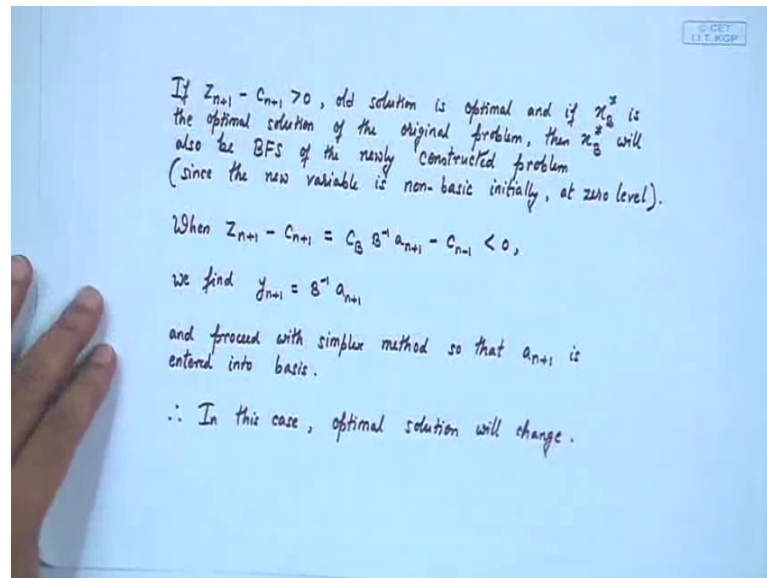 © CET
I.I.T. KGP
If Z_{n+1} - C_{n+1} >0, old solution is optimal and if x_B^* is
the optimal solution of the original problem, then x_B^* will
also be BFS of the newly constructed problem
(since the new variable is non-basic initially, at zero level).
When Z_{n+1} - C_{n+1} = C_B B^{-1} a_{n+1} - C_{n-1} < 0,
we find y_{n+1} = B^{-1} a_{n+1}
and proceed with simplex method so that a_{n+1} is
entered into basis.
∴ In this case, optimal solution will change.